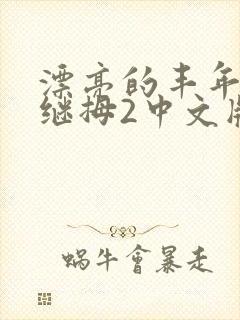 漂亮的丰年
继拇2中文版
蜗牛會暴走